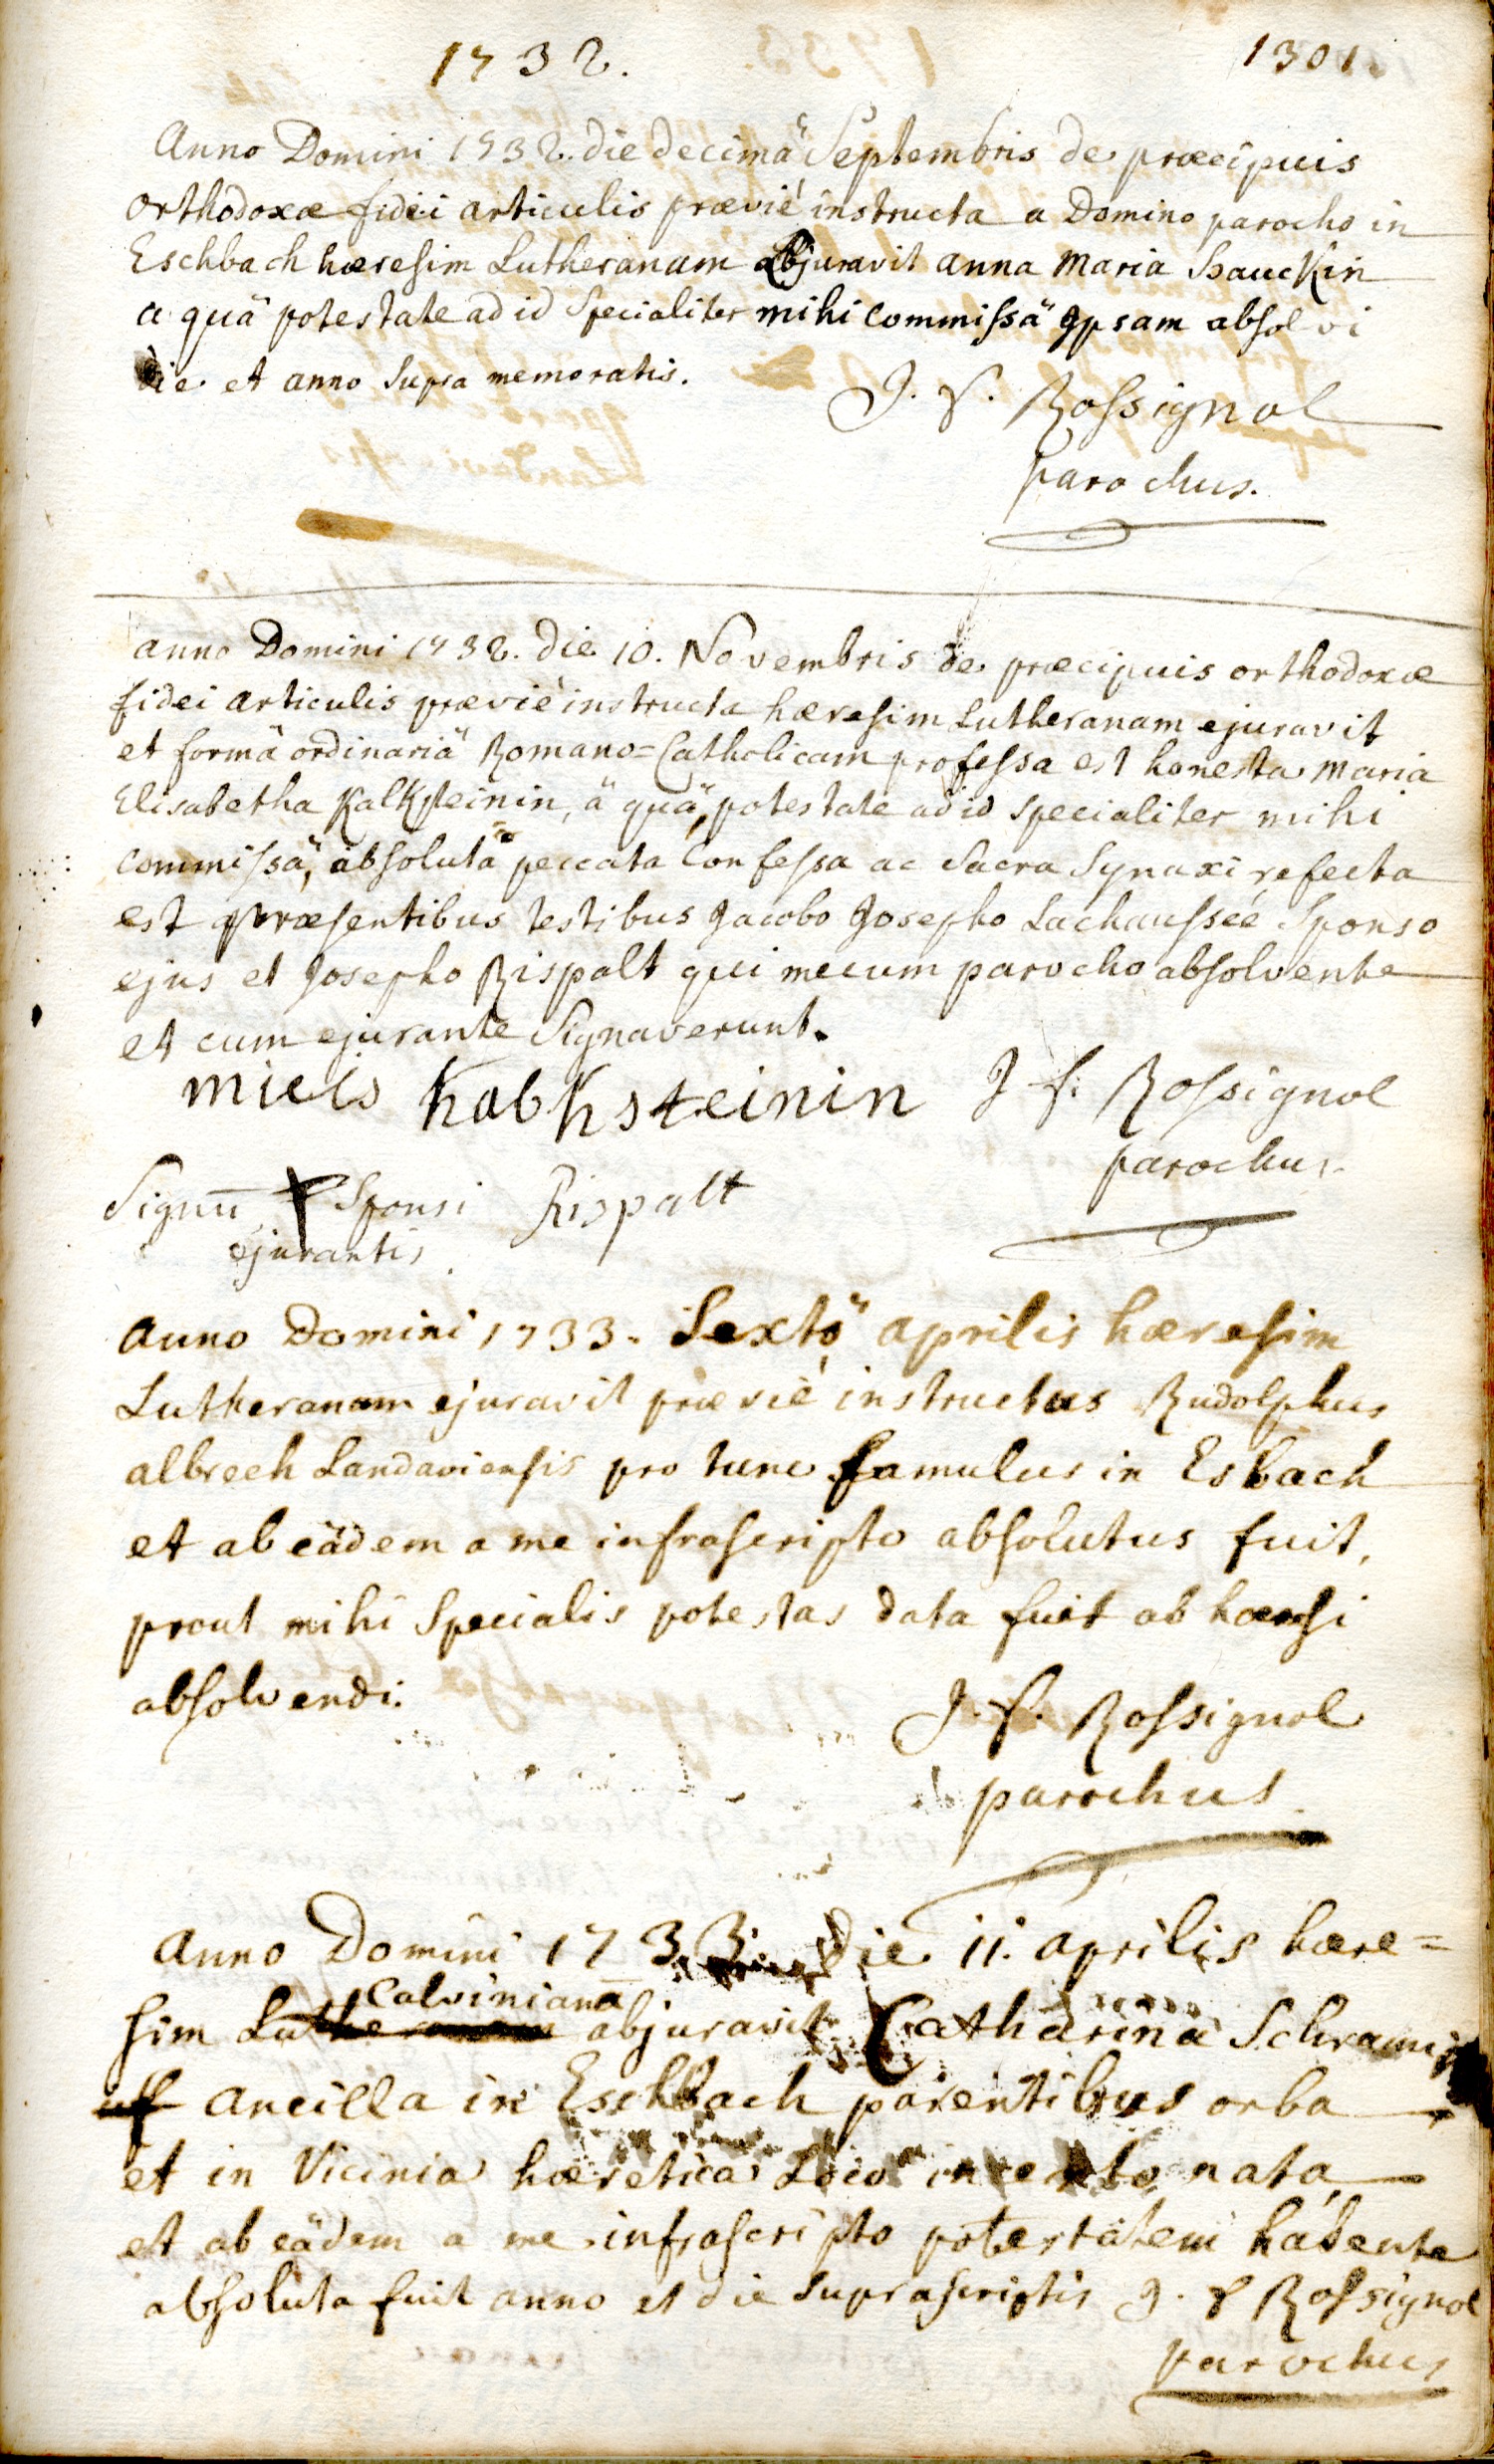 1732.
1301.
Anno Domini 1732. die decimâ Septembris de præcipuis
orthodoxæ fidei articulis præviè instructa a Domino parocho in
Eschbach hæresim Lutheranam abjuravit anna Maria Hauckin
a quâ potestate ad id specialiter mihi commissâ ipsam absolvi
die et anno supra memoratis.
J. F. Rossignol
parochus.
anno Domini 1732. die 10. Novembris de præcipuis orthodoxæ
fidei articulis præviè instructa hæresim Lutheranam ejuravit
et formâ ordinariâ Romano=Catholicam professa est honesta Maria
Elisabetha Kalksteinin, â quâ, potestate ad id specialiter mihi
commissâ, absoluta peccata confessa ac sacra Synaxi refecta
est præsentibus testibus Jacobo Josepho Lachausseé Sponso
ejus et Josepho Rispalt qui mecum parocho absolvente
et cum ejurante signaverunt.
Kalksteinin J F. Rossignol
parochus
Signū Sponsi Rispalt
ejurantis
Anno Domini 1733. Sextâ aprilis hæresim
Lutheranam ejuravit præviè instructus Rudolphus
albrech Landaviensis pro tunc famulus in Esbach
et ab eâdem a me infrascripto absolutus fuit,
prout mihi specialis potestas data fuit ab hæresi
absolvendi.
J. F. Rossignol
parochus
Anno Domini 1733. die 11. aprilis hære=
Calvinianā
sim Lutheranam abjuravit Catharina
ancilla in Eschbach parentibus orba
et in Vicinia hæretica Loco incerto nata
et ab eâdem a me infrascripto potestatem habente
absoluta fuit anno et die suprascriptis J. F Rossignol
parochus